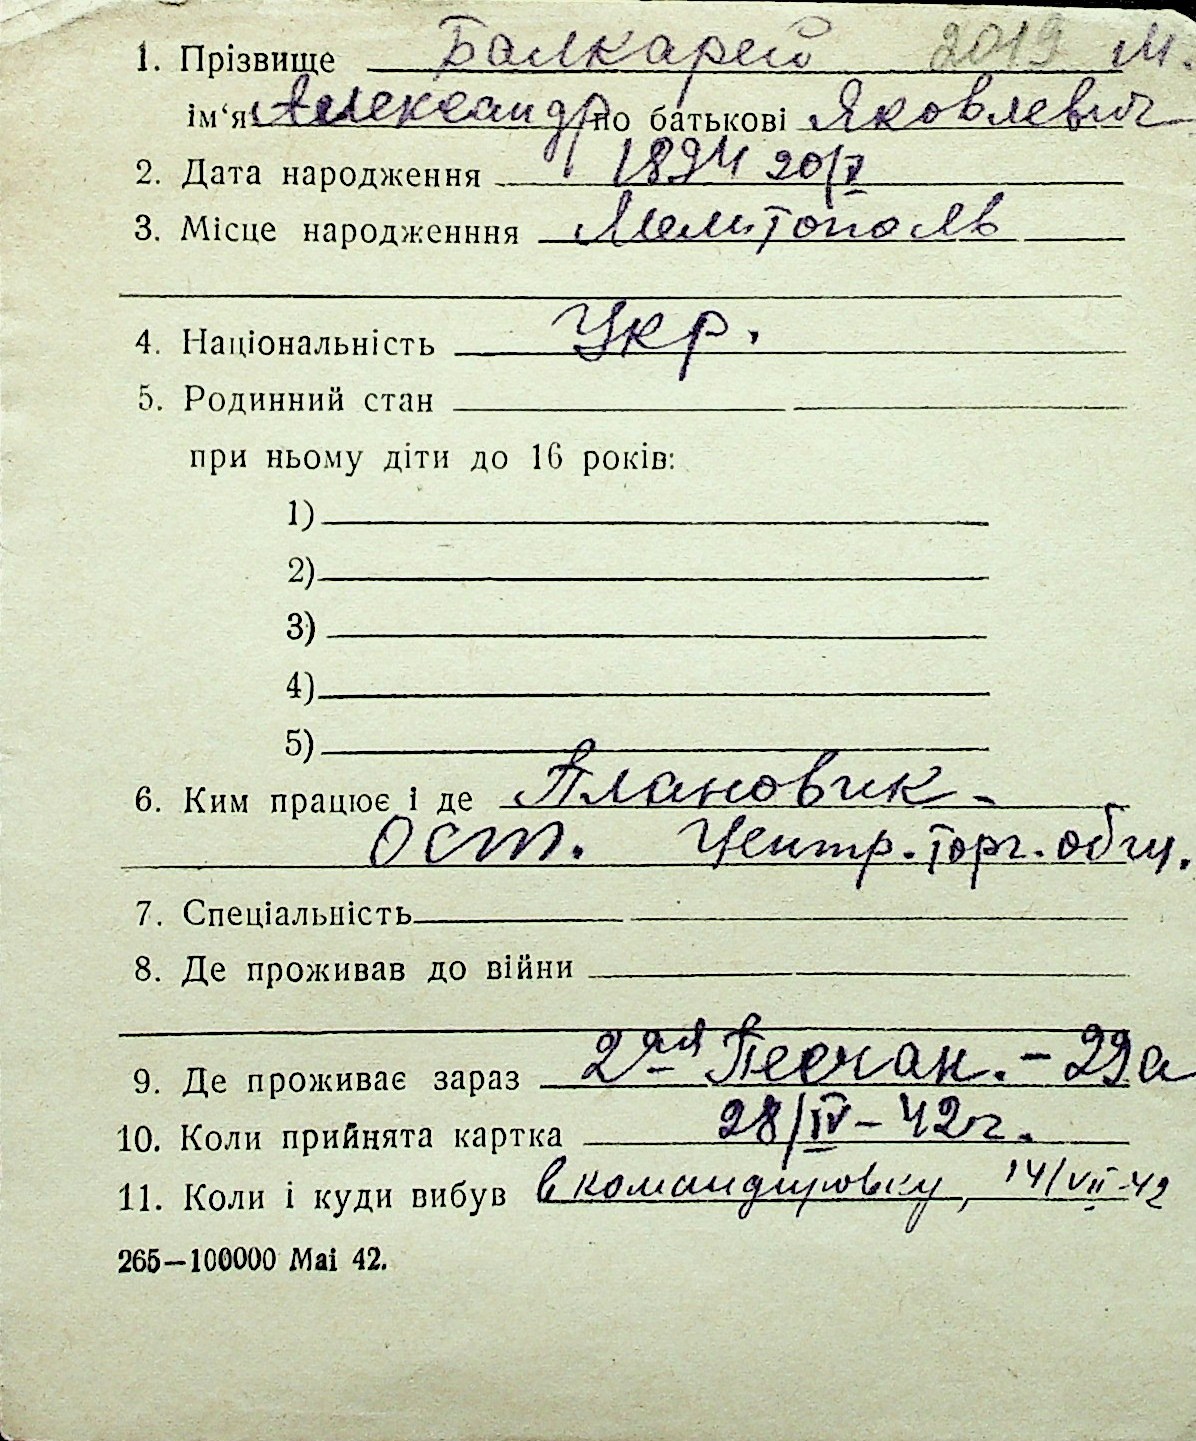 1. Прізвище Балкарей 2019 М.
ім‘я Александр по батькові Яковлевич
2. Дата народження 1894 20/X
3. Місце народженння Мелитополь
4. Національність Укр.
5. Родинний стан
при ньому діти до 16 років:
1)
2)
3)
4)
5)
6. Ким працює і де Плановик -
Ост. Центр. торг. общ.
7. Спеціальність
8. Де проживав до війни
9. Де проживає зараз 2ая Песчан. - 29а
10. Коли прийнята картка 28/IV - 42 г.
11. Коли і куди вибув в командировку, 14/VII-42
265—100000 Mai 42.